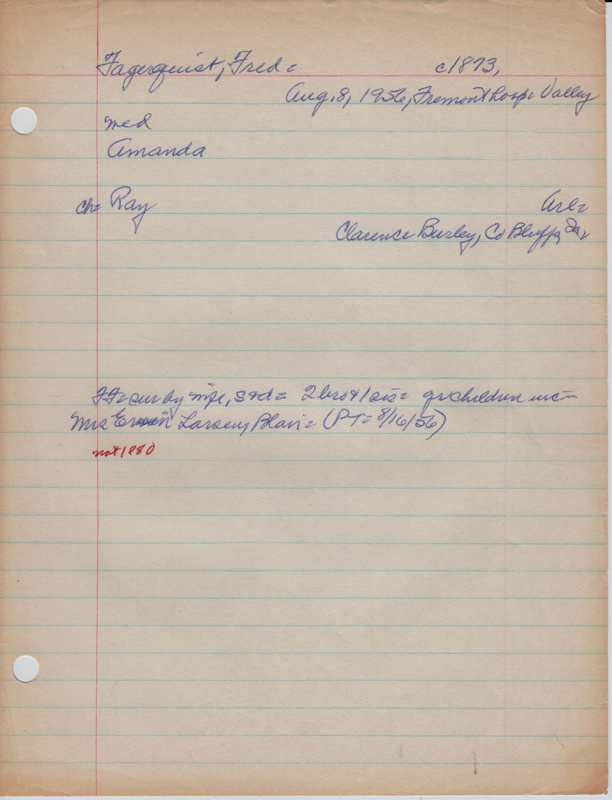 Fagerquist, Fred = c1873,
Aug. 8, 1956, Fremont hosp = Valley
med
Amanda
ch = Ray
Clarence Burley, Co Bluffs, Ia,
FF = sur by wife, s+d = 2 bro + 1 sis = grchildren inc =
Mrs Larsen, Blair = (PT = 8/16/56)
not 1880